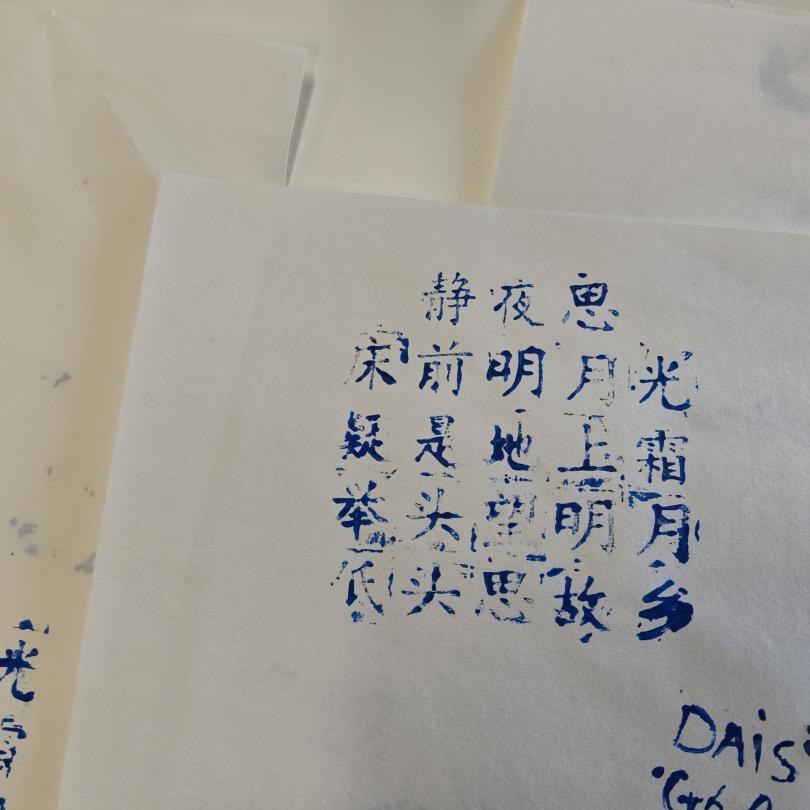 静夜思
床前明月光
疑是地上霜
举头望明月
低头思故乡
DAiS
光